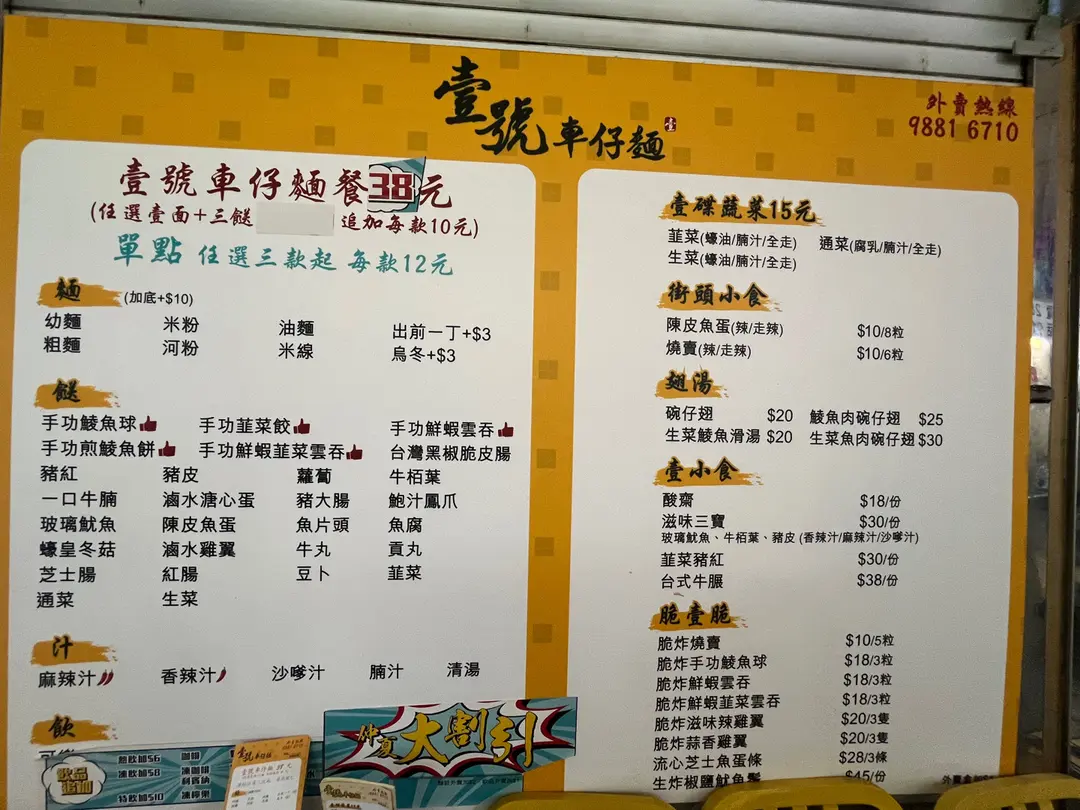 壹號車仔麵
外賣熱線
9881 6710
壹號車仔麵餐38元
(任選壹面+三餸 追加每款10元)
單點 任選三款起 每款12元
麵 (加底+$10)
幼麵 米粉 油麵 出前一丁+$3
粗麵 河粉 米線 烏冬+$3
餸
手功鯪魚球 手功韮菜餃 手功鮮蝦雲吞
手功煎鯪魚餅 手功鮮蝦韮菜雲吞 台灣黑椒脆皮腸
豬紅 豬皮 蘿蔔 牛栢葉
一口牛腩 滷水溏心蛋 豬大腸 鮑汁鳳爪
玻璃魷魚 陳皮魚蛋 魚片頭 魚腐
蠔皇冬菇 滷水雞翼 牛丸 貢丸
芝士腸 紅腸 豆卜 韮菜
通菜 生菜
汁
麻辣汁 香辣汁 沙嗲汁 腩汁 清湯
飲
壹碟蔬菜15元
韮菜(蠔油/腩汁/全走) 通菜(腐乳/腩汁/全走)
生菜(蠔油/腩汁/全走)
街頭小食
陳皮魚蛋(辣/走辣) $10/8粒
燒賣(辣/走辣) $10/6粒
翅湯
碗仔翅 $20 鯪魚肉碗仔翅 $25
生菜鯪魚滑湯 $20 生菜魚肉碗仔翅 $30
壹小食
酸齋 $18/份
滋味三寶 $30/份
玻璃魷魚、牛栢葉、豬皮 (香辣汁/麻辣汁/沙嗲汁)
韮菜豬紅 $30/份
台式牛𦟌 $38/份
脆壹脆
脆炸燒賣 $10/5粒
脆炸手功鯪魚球 $18/3粒
脆炸鮮蝦雲吞 $18/3粒
脆炸鮮蝦韮菜雲吞 $18/3粒
脆炸滋味辣雞翼 $20/3隻
脆炸蒜香雞翼 $20/3隻
流心芝士魚蛋條 $28/3條
生炸椒鹽魷魚鬚 $45/份
仲夏大割引
飲品
追加
熱飲加$6 咖啡
凍飲加$8 凍咖啡
特飲加$10 凍檸樂